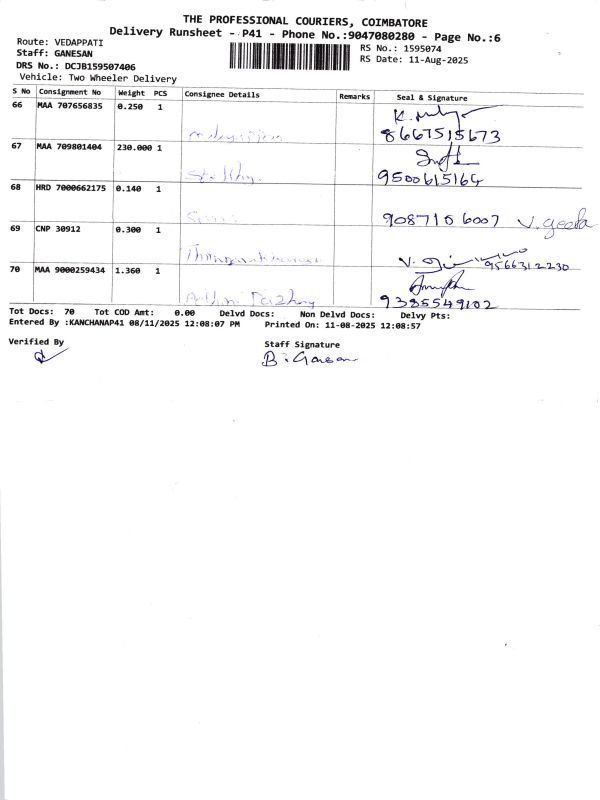 THE PROFESSIONAL COURIERS, COIMBATORE
Delivery Runsheet - P41 - Phone No.:9047080280 - Page No.:6
Route: VEDAPPATI
RS No.: 1595074
Staff: GANESAN
RS Date: 11-Aug-2025
DRS No.: DCJB159507406
Vehicle: Two Wheeler Delivery
S No Consignment No Weight PCS Consignee Details Remarks Seal & Signature
66 MAA 707656835 0.250 1
8667515673
67 MAA 709801404 230.000 1
9500615164
68 HRD 7000662175 0.140 1
9087106007 V. geetha
69 CNP 30912 0.300 1
9566312230
70 MAA 9000259434 1.360 1
9385549102
Tot Docs: 70 Tot COD Amt: 0.00 Delvd Docs: Non Delvd Docs: Delvy Pts:
Entered By :KANCHANAP41 08/11/2025 12:08:07 PM Printed On: 11-08-2025 12:08:57
Verified By
Staff Signature